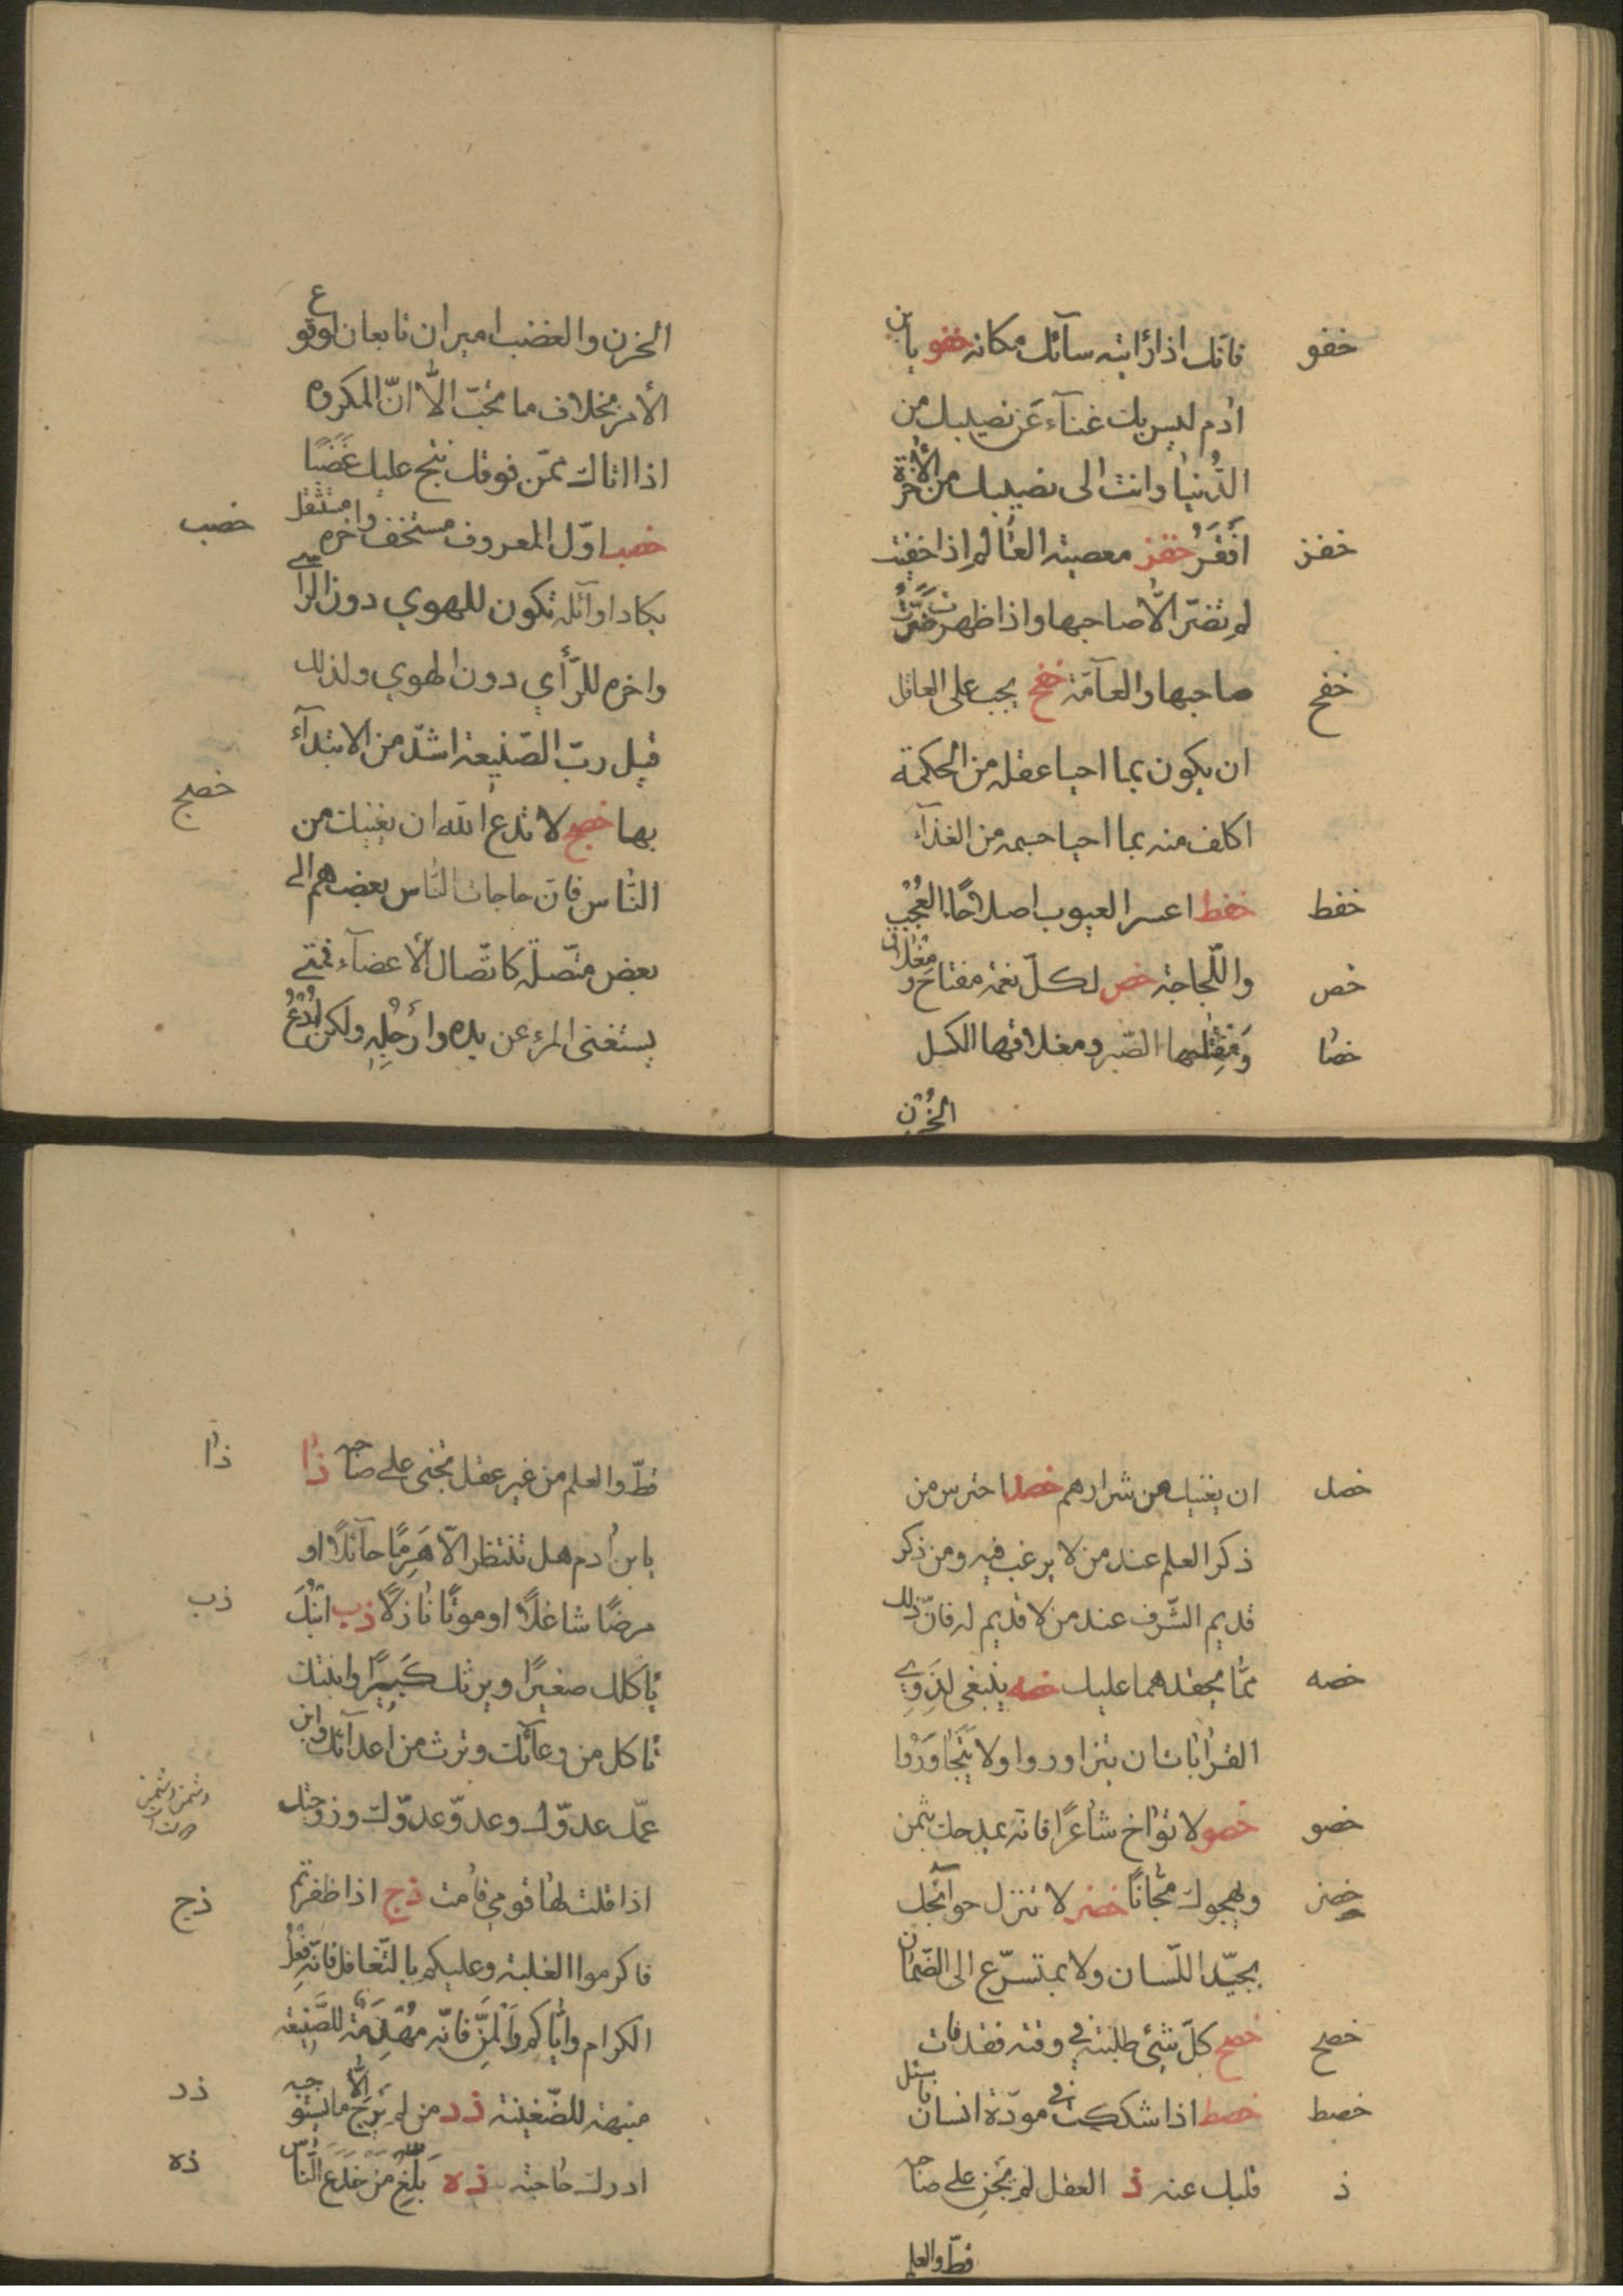 خفو
فانّك اذا رأيته سآئك مكانه خفو يابن
ادم ليس بك غنآء عَن نصيبك من
الدُنيا وانت الى نصيبك من الأخرة
خفز
اَفقَرُ خفز معصية العالم اذا خفيت
لم تضرّ الّا صاحبها واذا ظهرت ضرّت
خفح
صاحبها والعآمّة خفح يجب على العاقل
ان يكون بما احيا عقله من الحكمة
اكلف منه بما احيا جسمه من الغذآء
خفط
خفط اعسر العيوب اصلاحًا العُجب
خص
واللّجاجة خص لكلّ نعمة مفتاح و مغلاق
خصا
الصّبر ومغلاقها الكسل
الحُزن
الحزن والغضب اميران تابعان لوقوع
الأمر بخلاف ما تحبّ الّا انّ المكروه
اذا اتاك ممّن فوقك نتج عليك غَضَبًا
خصب
خصب اوّل المعروف مستخف واخره مستثقل
يكاد اوآئله تكون للهوي دون الرأي
واخره للرّأي دون الهوي ولذلك
قيل ربّ الصّنيعة اشدّ من الابتدآء
خصج
بها خصج لا تدع الله ان يغنيك من
النّاس فانّ حاجات النّاس بعضهم الى
بعض متّصلة كاتّصال الأعضآء فمتى
يستغنى المرء عن يده وأرجُلِهِ ولكن اُدْعُ
خصد
ان يغنيك من شرارهم خصد احترس من
ذكر العلم عند من لا يرغب فيه ومن ذكر
قديم الشّرف عند من لا قديم له فانّ ذلك
خصه
ممّا يحقدهما عليك خصه ينبغى لذَوِي
القرابات ان يتزاوروا ولا يَتَجَاوَرُوا
خصو
خصو لا تؤاخ شاعرًا فانّه يمدحك بثمن
خصز
ويهجوك مجّانًا خصز لا تنزل حوآئجك
بجيّد اللّسان ولا بمتسرّع الى الضّمان
خصح
خصح كلّ شئ طلبته في وقته فقد فات
خصط
خصط اذا شككت في مودّة انسان فاسئل
ذ
قلبك عنه ذ العقل لم يَجنِ على صاحبه
قطّ والعلم
ذا
قطّ والعلم من غير عقل يجنى على صاحبه ذا
يابن ادم هل تنتظر الّا هَرِمًا حآئلًا او
ذب
مرضًا شاغلًا او موتًا نازلًا ذب ابنُكَ
ياكلك صغيرًا ويرثك كَبيرًا وابنتك
تاكل من وعآئك وترث من اعدآئك وابن
عمّك عدوّك وعدوّ عدوّك وزوجتك
ذج
اذا قلت لها قومي قامت ذج اذا ظفرتم
فاكرموا الغلبة وعليكم بالتّغافل فانّه فِعْلُ
الكرام وايّاكم وَالمَنَّ فانّه مُهْدِمَة للصَّنِيعَة
ذد
منبهة للضّغينة ذد من لم يَرْجُ الّا ما يستوجبه
ذه
ادرك حاجته ذه بَلَغَ مَنْ خَدَعَ النّاسَ